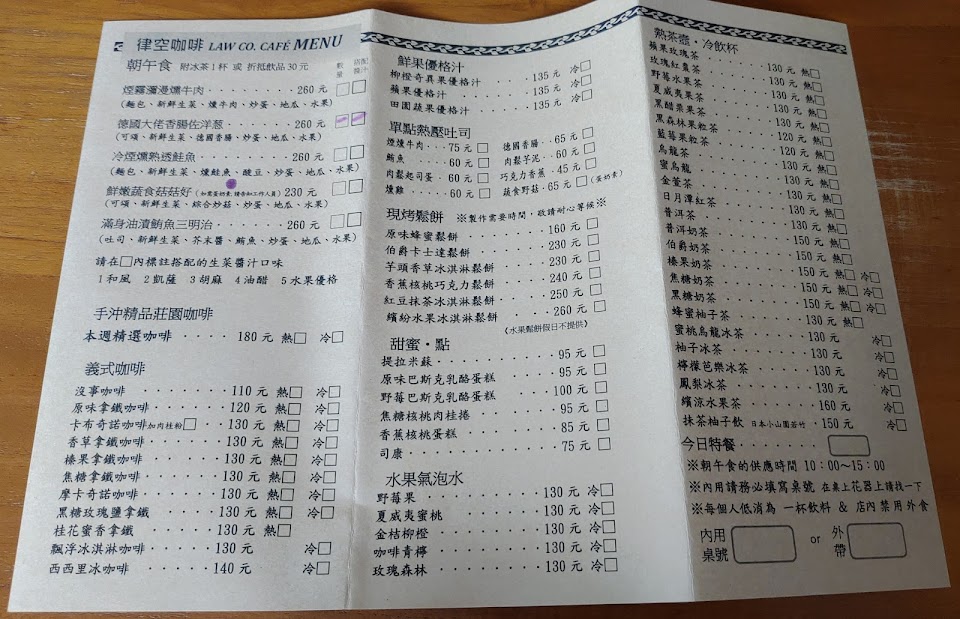 律空咖啡 LAW CO. CAFÉ MENU
朝午食 附冰茶1杯 或 折抵飲品30元 數量 搭配醬汁
煙霧瀰漫燻牛肉 260 元
(麵包、新鮮生菜、燻牛肉、炒蛋、地瓜、水果)
德國大佬香腸佐洋蔥 260 元
(可頌、新鮮生菜、德國香腸、炒蛋、地瓜、水果)
冷煙燻熟透鮭魚 260 元
(麵包、新鮮生菜、燻鮭魚、酸豆、炒蛋、地瓜、水果)
鮮嫩蔬食菇菇好 230 元
(可頌、新鮮生菜、綜合炒菇、炒蛋、地瓜、水果)
滿身油漬鮪魚三明治 260 元
(吐司、新鮮生菜、芥末醬、鮪魚、炒蛋、地瓜、水果)
請在□內標註搭配的生菜醬汁口味
1和風 2凱薩 3胡麻 4油醋 5水果優格
手沖精品莊園咖啡
本週精選咖啡 180 元 熱□ 冷□
義式咖啡
沒事咖啡 110 元 熱□ 冷□
原味拿鐵咖啡 120 元 熱□ 冷□
卡布奇諾咖啡加肉桂粉□ 130 元 熱□ 冷□
香草拿鐵咖啡 130 元 熱□ 冷□
榛果拿鐵咖啡 130 元 熱□ 冷□
焦糖拿鐵咖啡 130 元 熱□ 冷□
摩卡奇諾咖啡 130 元 熱□ 冷□
黑糖玫瑰鹽拿鐵 130 元 熱□ 冷□
桂花蜜香拿鐵 130 元 熱□
飄浮冰淇淋咖啡 130 元 冷□
西西里冰咖啡 140 元 冷□
鮮果優格汁
柳橙奇異果優格汁 135 元 冷□
蘋果優格汁 135 元 冷□
田園蔬果優格汁 135 元 冷□
單點熱壓吐司
煙燻牛肉 75 元 □ 德國香腸 65 元 □
鮪魚 60 元 □ 肉鬆芋泥 60 元 □
肉鬆起司蛋 60 元 □ 巧克力香蕉 45 元 □
燻雞 60 元 □ 蔬食野菇 65 元 □ (蛋奶素)
現烤鬆餅 ※製作需要時間,敬請耐心等候※
原味蜂蜜鬆餅 160 元 □
伯爵卡士達鬆餅 230 元 □
芋頭香草冰淇淋鬆餅 230 元 □
香蕉核桃巧克力鬆餅 240 元 □
紅豆抹茶冰淇淋鬆餅 250 元 □
繽紛水果冰淇淋鬆餅 260 元 □
(水果鬆餅假日不提供)
甜蜜・點
提拉米蘇 95 元 □
原味巴斯克乳酪蛋糕 95 元 □
野莓巴斯克乳酪蛋糕 100 元 □
焦糖核桃肉桂捲 95 元 □
香蕉核桃蛋糕 85 元 □
司康 75 元 □
水果氣泡水
野莓果 130 元 冷□
夏威夷蜜桃 130 元 冷□
金桔柳橙 130 元 冷□
咖啡青檸 130 元 冷□
玫瑰森林 130 元 冷□
熱茶壺・冷飲杯
蘋果玫瑰茶 130 元 熱□
玫瑰紅棗茶 130 元 熱□
野莓水果茶 130 元 熱□
夏威夷果茶 130 元 熱□
黑醋栗果茶 130 元 熱□
黑森林果粒茶 130 元 熱□
藍莓果粒茶 120 元 熱□
烏龍茶 120 元 熱□
蜜烏龍 130 元 熱□
金萱茶 130 元 熱□
日月潭紅茶 130 元 熱□
普洱茶 130 元 熱□
普洱奶茶 150 元 熱□
伯爵奶茶 150 元 熱□ 冷□
榛果奶茶 150 元 熱□ 冷□
焦糖奶茶 150 元 熱□ 冷□
黑糖奶茶 150 元 熱□ 冷□
蜂蜜柚子茶 130 元 熱□
蜜桃烏龍冰茶 130 元 冷□
柚子冰茶 130 元 冷□
檸檬芭樂冰茶 130 元 冷□
鳳梨冰茶 130 元 冷□
繽涼水果茶 160 元 冷□
抹茶柚子飲 日本小山園若竹 150 元 冷□
今日特餐
※朝午食的供應時間 10:00~15:00
※內用請務必填寫桌號 在桌上花器上請找一下
※每個人低消為 一杯飲料 & 店內禁用外食
內用桌號 or 外帶